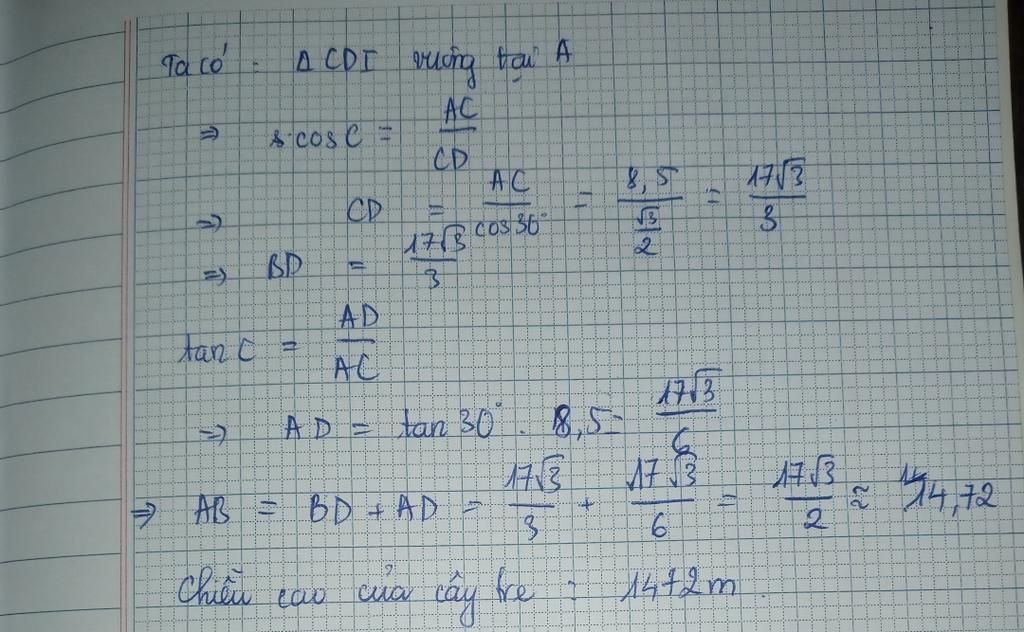 Ta có : Δ CDI vuông tại A
⇒ cosC = AC/CD
⇒ CD = AC/cos30° = 8,5/(√3/2) = 17√3/3
⇒ BD = 17√3/3
tan C = AD/AC
⇒ AD = tan 30° . 8,5 = 17√3/6
⇒ AB = BD + AD = 17√3/3 + 17√3/6 = 17√3/2 ≈ 14,72
Chiều cao của cây tre : 1472m.